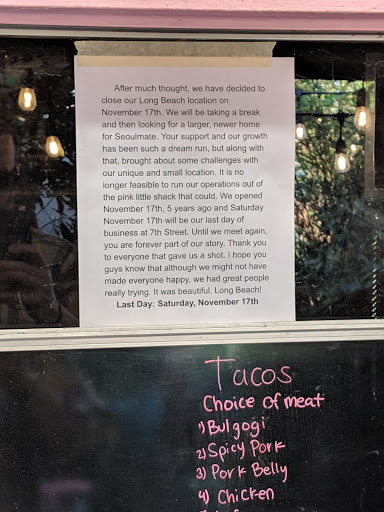 After much thought, we have decided to
close our Long Beach location on
November 17th. We will be taking a break
and then looking for a larger, newer home
for Seoulmate. Your support and our growth
has been such a dream run, but along with
that, brought about some challenges with
our unique and small location. It is no
longer feasible to run our operations out of
the pink little shack that could. We opened
November 17th, 5 years ago and Saturday
November 17th will be our last day of
business at 7th Street. Until we meet again,
you are forever part of our story. Thank you
to everyone that gave us a shot. I hope you
guys know that although we might not have
made everyone happy, we had great people
really trying. It was beautiful. Long Beach!
Last Day: Saturday, November 17th
Tacos
Choice of meat
1) Bulgogi
2) Spicy Pork
3) Pork Belly
4) Chicken